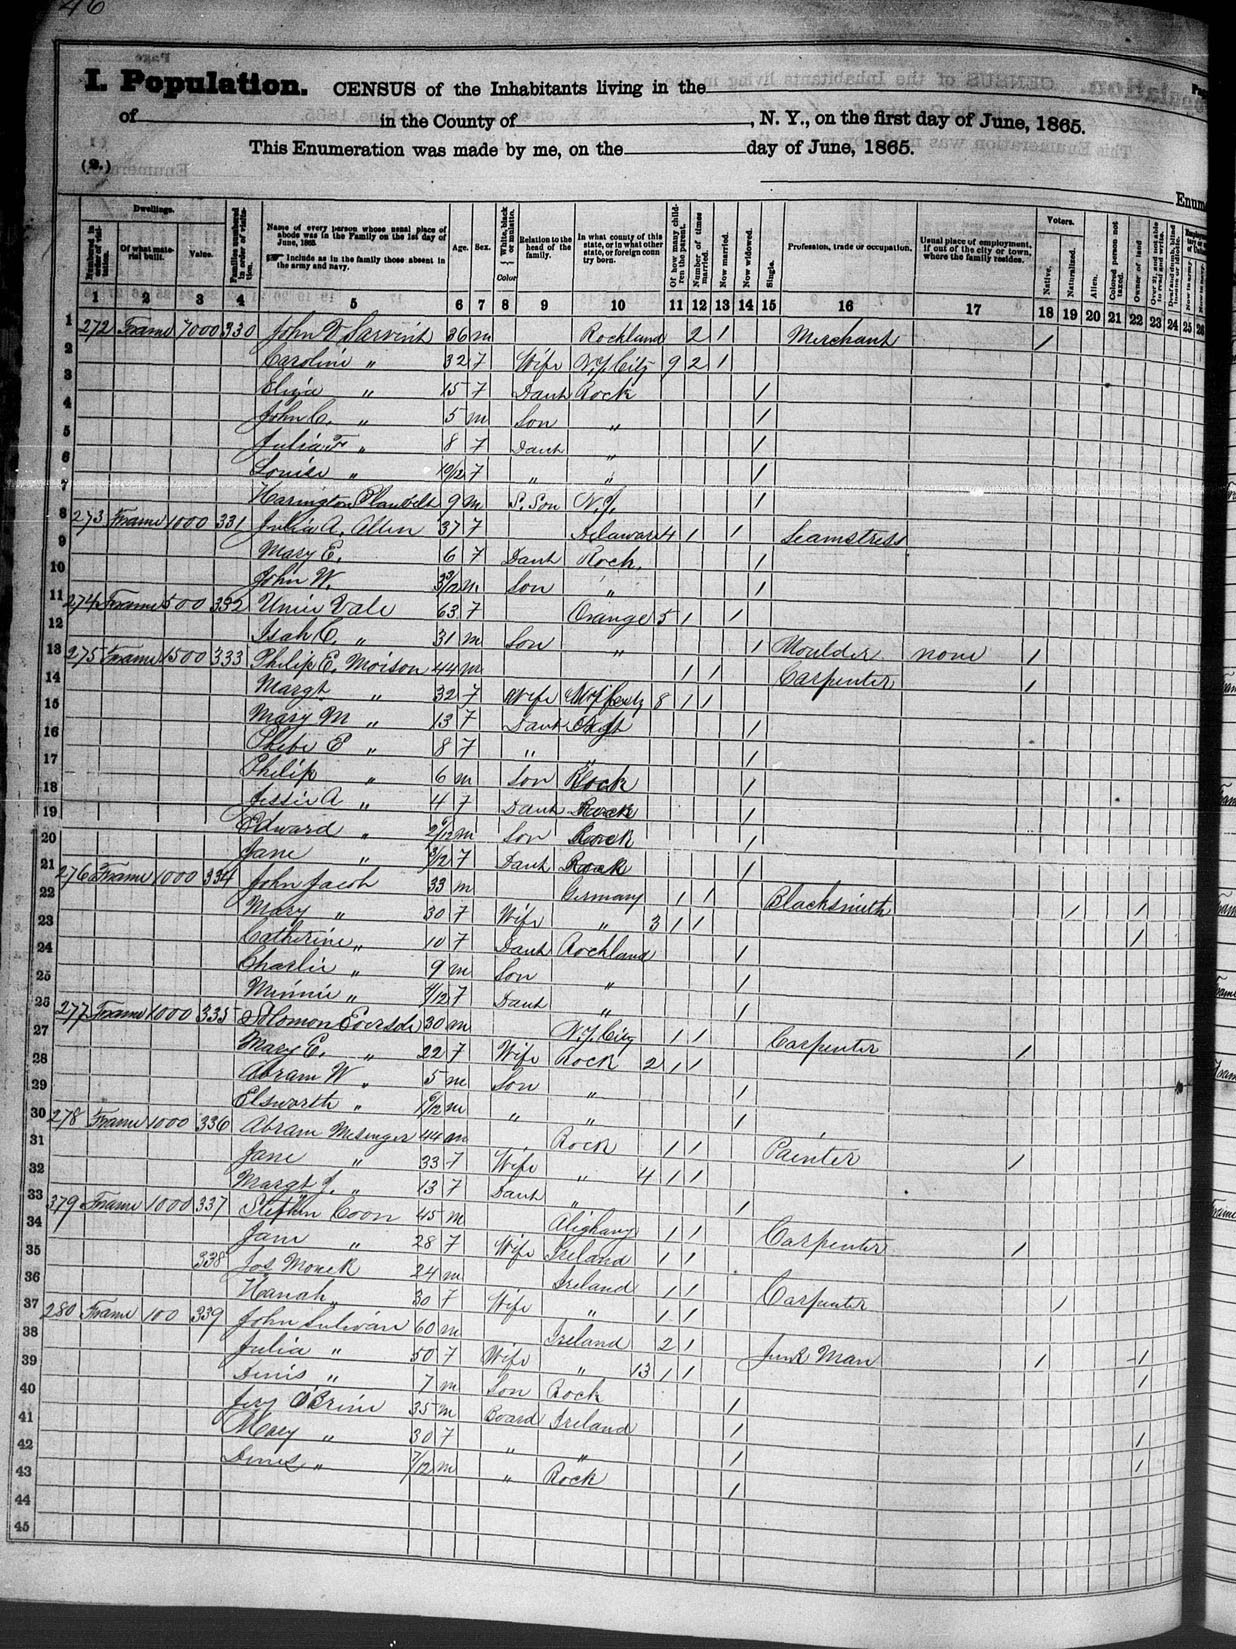 46
I. Population. CENSUS of the Inhabitants living in the
of in the County of , N. Y., on the first day of June, 1865.
This Enumeration was made by me, on the day of June, 1865.
(2.)
Enum
Dwellings.
Of what material built.
Value.
Families numbered in order of visitation.
Name of every person whose usual place of abode was in the Family on the 1st day of June, 1865.
Include as in the families those absent in the army and navy.
Age.
Sex.
White, black or mulatto.
Color
Relation to the head of the family.
In what county of this state, or in what other state, or foreign country born.
Of how many children the parent.
Number of times married.
Now married.
Now widowed.
Single.
Profession, trade or occupation.
Usual place of employment, if out of the city or town, where the family resides.
Voters.
Native.
Naturalized.
Alien.
Colored person not taxed.
Owner of land
1 2 3 4 5 6 7 8 9 10 11 12 13 14 15 16 17 18 19 20 21 22 23 24 25 26
1 272 Frame 7000 330 John D Sarvent 36 m Rockland 2 1 Merchant 1
2 Caroline " 32 7 Wife N.Y. City 9 2 1
3 Eliza " 15 7 Daut Rock 1
4 John C. " 5 m Son " 1
5 Julia F " 8 7 Daut " 1
6 Louise " 10/12 7 " " 1
7 Harington Blauvelt 9 m S. Son N.J. 1
8 273 Frame 1000 331 Julia A. Allen 37 7 Delaware 4 1 1 Seamstress
9 Mary E. 6 7 Daut Rock. 1
10 John W. m Son " 1
11 274 Frame 500 332 Unice Vale 63 7 Orange 5 1 1
12 Isah C. " 31 m Son " 1 Moulder none 1
13 275 Frame 1500 333 Philip E. Moison 44 m 1 1 Carpenter 1
14 Margt " 32 7 Wife 8 1 1
15 Mary M " 13 7 Daut 1
16 Phebe E " 8 7 " " 1
17 Philip " 6 m Son Rock 1
18 Jessie A " 4 7 Daut Rock 1
19 Edward " m Son Rock 1
20 Jane " 3/12 7 Daut Rock 1
21 276 Frame 1000 334 John Jacob 33 m Germany 1 1 Blacksmith 1 1
22 Mary " 30 7 Wife " 3 1 1 1
23 Catherine " 10 7 Daut Rockland 1
24 Charlie " 9 m Son " 1
25 Minnie " 4/12 7 Daut " 1
26 277 Frame 1000 335 Solomon Eversde 30 m N.Y. City 1 1 Carpenter 1
27 Mary E. " 22 7 Wife Rock 2 1 1
28 Abram W " 5 m Son " 1
29 Elsworth " m " " 1
30 278 Frame 1000 336 Abram Mesenger 44 m Rock 1 1 Painter 1
31 Jane " 33 7 Wife " 4 1 1
32 Margt J. " 13 7 Daut " 1
33 379 Frame 1000 337 Stephen Coon 45 m Alighany 1 1 Carpenter 1
34 Jane " 28 7 Wife Ireland 1 1
35 338 Jos Monek 24 m Ireland 1 1 Carpenter 1
36 Hanah " 30 7 Wife " 1 1
37 280 Frame 100 339 John Sulivan 60 m Ireland 2 1 Junk Man 1 1
38 Julia " 50 7 Wife " 13 1 1 1
39 Dinis " 7 m Son Rock 1
40 Jery O'Brine 35 m Board Ireland 1 1
41 Mary " 30 7 " " 1 1
42 Dines " 7/12 m " Rock 1
43
44
45